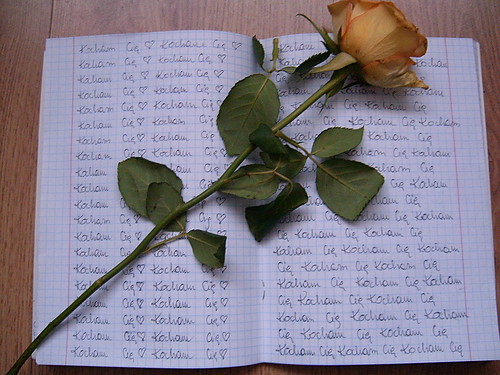 Kocham Cię ♡ Kocham Cię ♡
Kocham Cię ♡ Kocham Cię ♡
Kocham Cię ♡ Kocham Cię ♡
Kocham Cię ♡ Kocham Cię ♡
Kocham Cię ♡ Kocham Cię ♡
Kocham Cię ♡ Kocham Cię
Kocham Cię ♡ Kocham Cię
Kocham Cię ♡ Kocham Cię
Kocham Kocham Cię
Kocham Kocham Cię
Kocham Cię ♡
Kocham Cię Cię ♡
Kocham Cię Kocham
Kocham Cię Kocham
Kocham Cię ♡ Kocham Cię ♡
Kocham Cię ♡ Kocham Cię ♡
Kocham Cię ♡ Kocham Cię ♡
Kocham Cię ♡ Kocham Cię ♡
Kocham Cię ♡ Kocham Cię ♡
Kocham Cię ♡ Kocham Cię ♡
Kocham
Kocham
Kocham Cię
Kocham Cię
Cię Kocham Cię
Cię Kocham Cię Kocham
Kocham Cię
Kocham Cię Kocham
Kocham Cię
Cię Kocham
Kocham Cię
Kocham Cię Kocham
Cię Kocham Cię Kocham Cię
Kocham Cię Kocham Cię Kocham
Cię Kocham Cię Kocham Cię
Kocham Cię Kocham Cię Kocham
Cię Kocham Cię Kocham Cię
Kocham Cię Kocham Cię Kocham
Cię Kocham Cię Kocham Cię
Kocham Cię Kocham Cię Kocham Cię